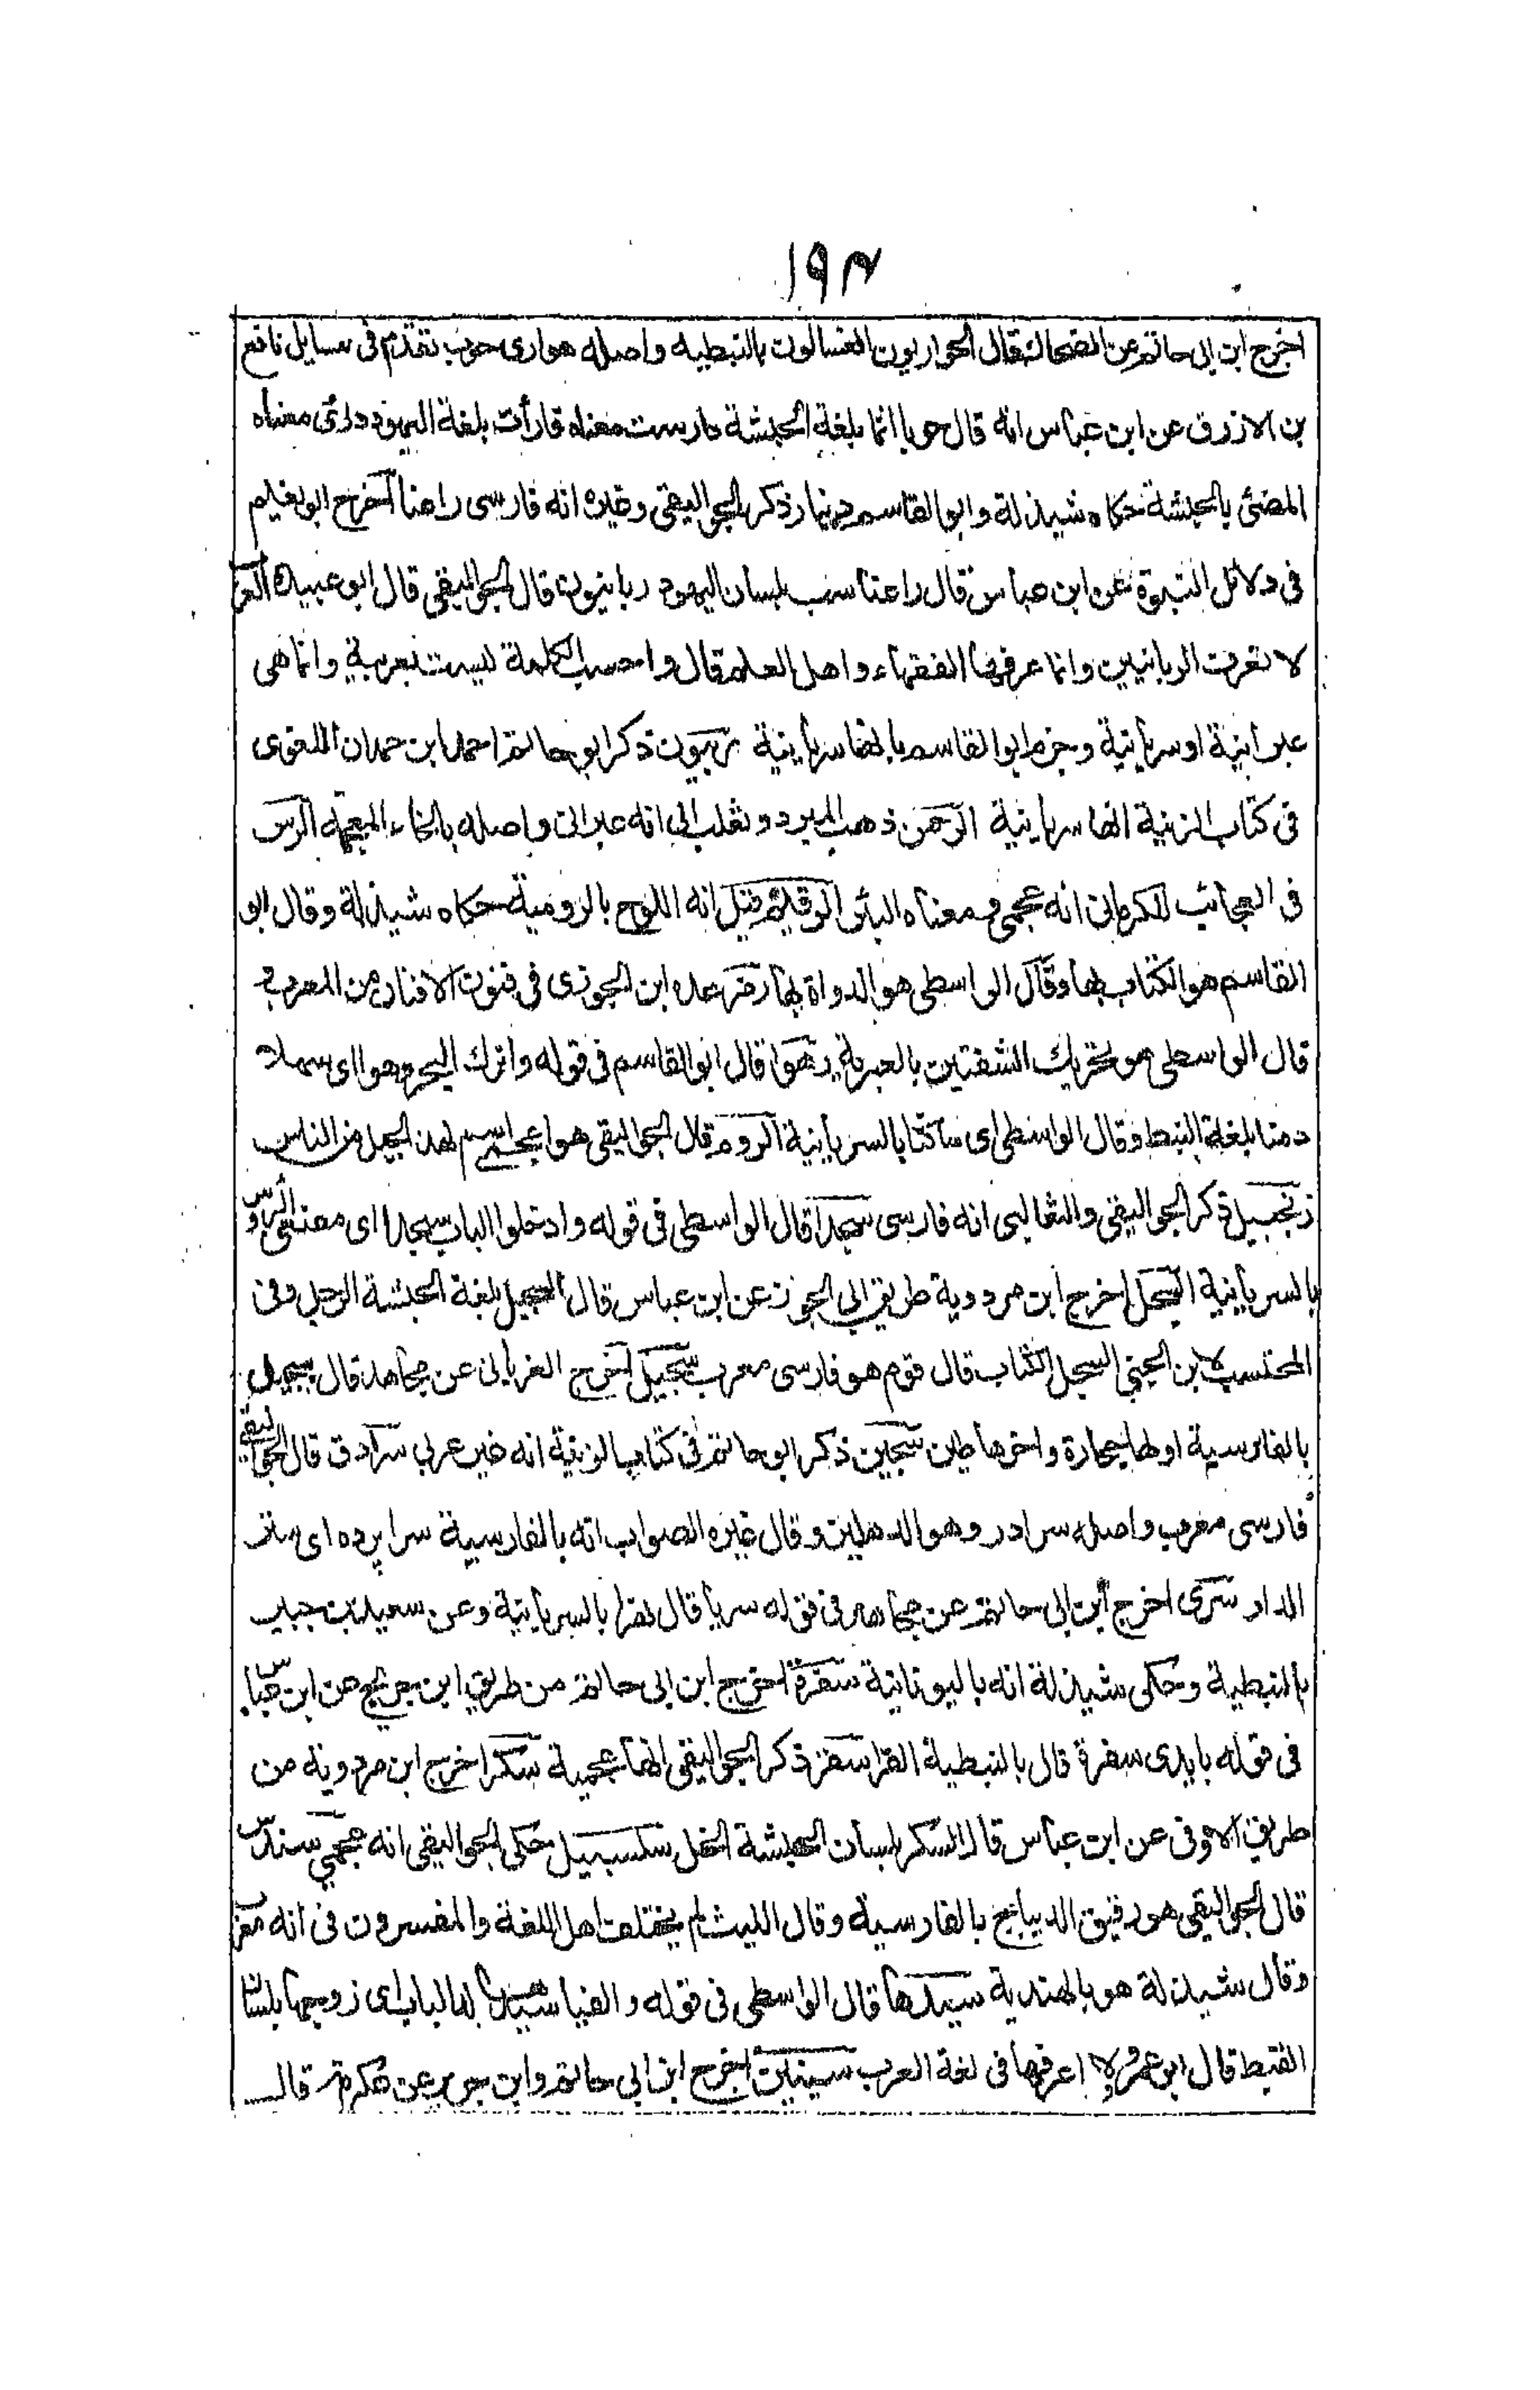 ١٩٣
اخرج ابن ابى حاتم عن الضحاك قال الحواريون الغسالون بالنبطيه واصله هوارى حوب تقدم فى مسايل نافع
بن الازرق عن ابن عباس انه قال حوبا اثما بلغة الحبشة دارست معناه قارأت بلغة اليهود درى معناه
المضئ بالحبشة حكاه شيذلة وابو القاسم دينار ذكر الجواليقى وغيره انه فارسى راعنا اخرج ابو نعيم
فى دلائل النبوة عن ابن عباس قال راعنا سب بلسان اليهود ربانيون قال الجواليقى قال ابو عبيدة العرب
لا تعرف الربانيين وانما عرفها الفقهاء واهل العلم قال واحسب الكلمة ليست بعربية وانما هى
عبرانية او سريانية وجزم ابو القاسم بانها سريانية ربيون ذكر ابو حاتم احمد ابن حمدان اللغوى
فى كتاب الزينة انها سريانية الرحمن ذهب المبرد وثعلب الى انه عبرانى واصله بالخاء المعجمه الرس
فى العجائب للكرمانى انه عجمى ومعناه البئر الرقيم قيل انه اللوح بالرومية حكاه شيذلة وقال ابو
القاسم هو الكتاب بها وقال الواسطى هو الدواة بها رمز عده ابن الجوزى فى فنون الافنان من المعرب و
قال الواسطى هو تحريك الشفتين بالعبرية رهوا قال ابو القاسم فى قوله واترك البحر رهوا اى سهلا
دمثا بلغة النبط وقال الواسطى اى ساكنا بالسريانية الروم قال الجواليقى هو اعجمى اسم لهذا الجيل من الناس
زنجبيل ذكر الجواليقى والثعالبى انه فارسى سجدا قال الواسطى فى قوله وادخلوا الباب سجدا اى مقنعى الرؤس
بالسريانية السجل اخرج ابن مردوية طريق ابى الجوزا عن ابن عباس قال السجل بلغة الحبشة الرجل وفى
المحتسب لابن الجنى السجل الكتاب قال قوم هو فارسى معرب سجيل اخرج الفريابى عن مجاهد قال سجيل
بالفارسية اولها حجارة واخرها طين سجين ذكر ابو حاتم فى كتاب الزينة انه غير عربى سرادق قال الجواليقى
فارسى معرب واصله سرادر وهو الدهليز وقال غيره الصواب انه بالفارسية سراپرده اى ستر
الدار سرى اخرج ابن ابى حاتم عن مجاهد فى قوله سريا قال نهرا بالسريانية وعن سعيد بن جبير
بالنبطية وحكى شيذلة انه باليونانية سفرة اخرج ابن ابى حاتم من طريق ابن جريج عن ابن عباس
فى قوله بايدى سفرة قال بالنبطية القرا سقر ذكر الجواليقى انها عجمية سكرا اخرج ابن مردويه من
طريق العوفى عن ابن عباس قال السكر بلسان الحبشة الخل سلسبيل حكى الجواليقى انه عجمى سندس
قال الجواليقى هو رقيق الديباج بالفارسية وقال الليث لم يختلف اهل اللغة والمفسرون فى انه معرب
وقال شيذلة هو بالهندية سيدها قال الواسطى فى قوله والفيا سيدها لدا الباب اى زوجها بلسان
القبط قال ابن عمر ولا اعرفها فى لغة العرب سينين اخرج ابن ابى حاتم وابن جرير عن عكرمة قال